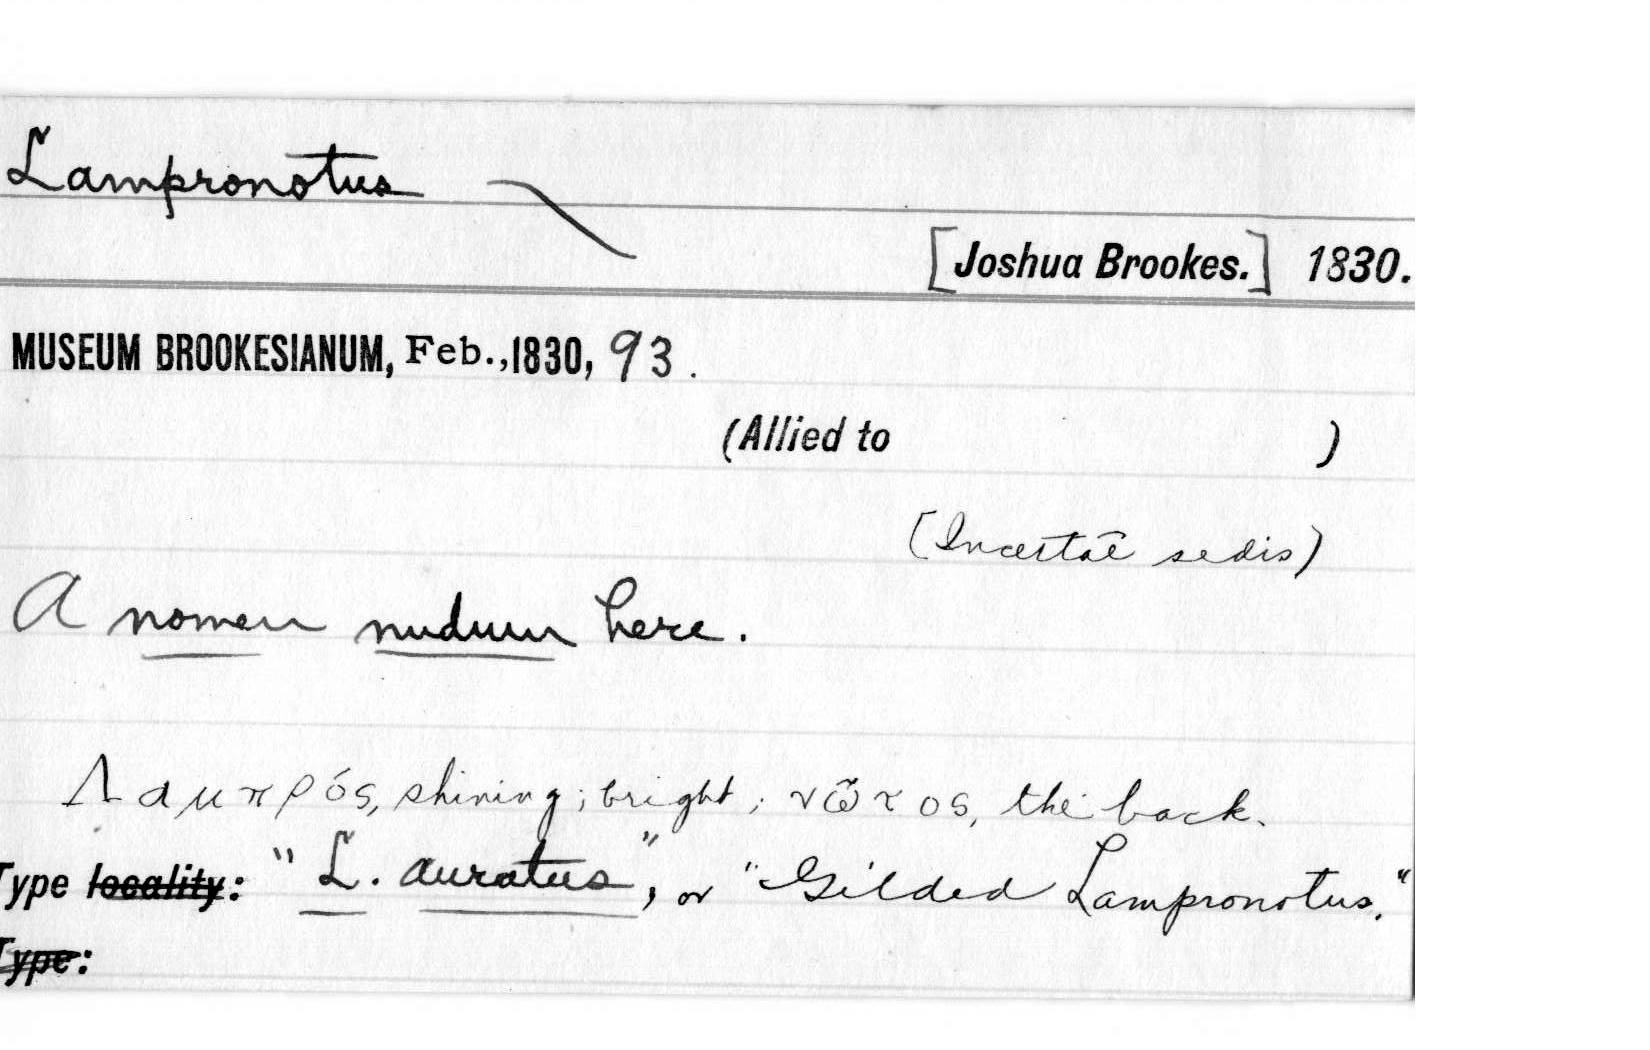 Lampronotus
[Joshua Brookes.] 1830.
MUSEUM BROOKESIANUM, Feb., 1830, 93.
(Allied to )
(Incertae sedis)
A nomen nudum here.
Λαμπρός, shining; bright; νῶτος, the back.
Type locality: "L. auratus", or "Gilded Lampronotus."
Type: